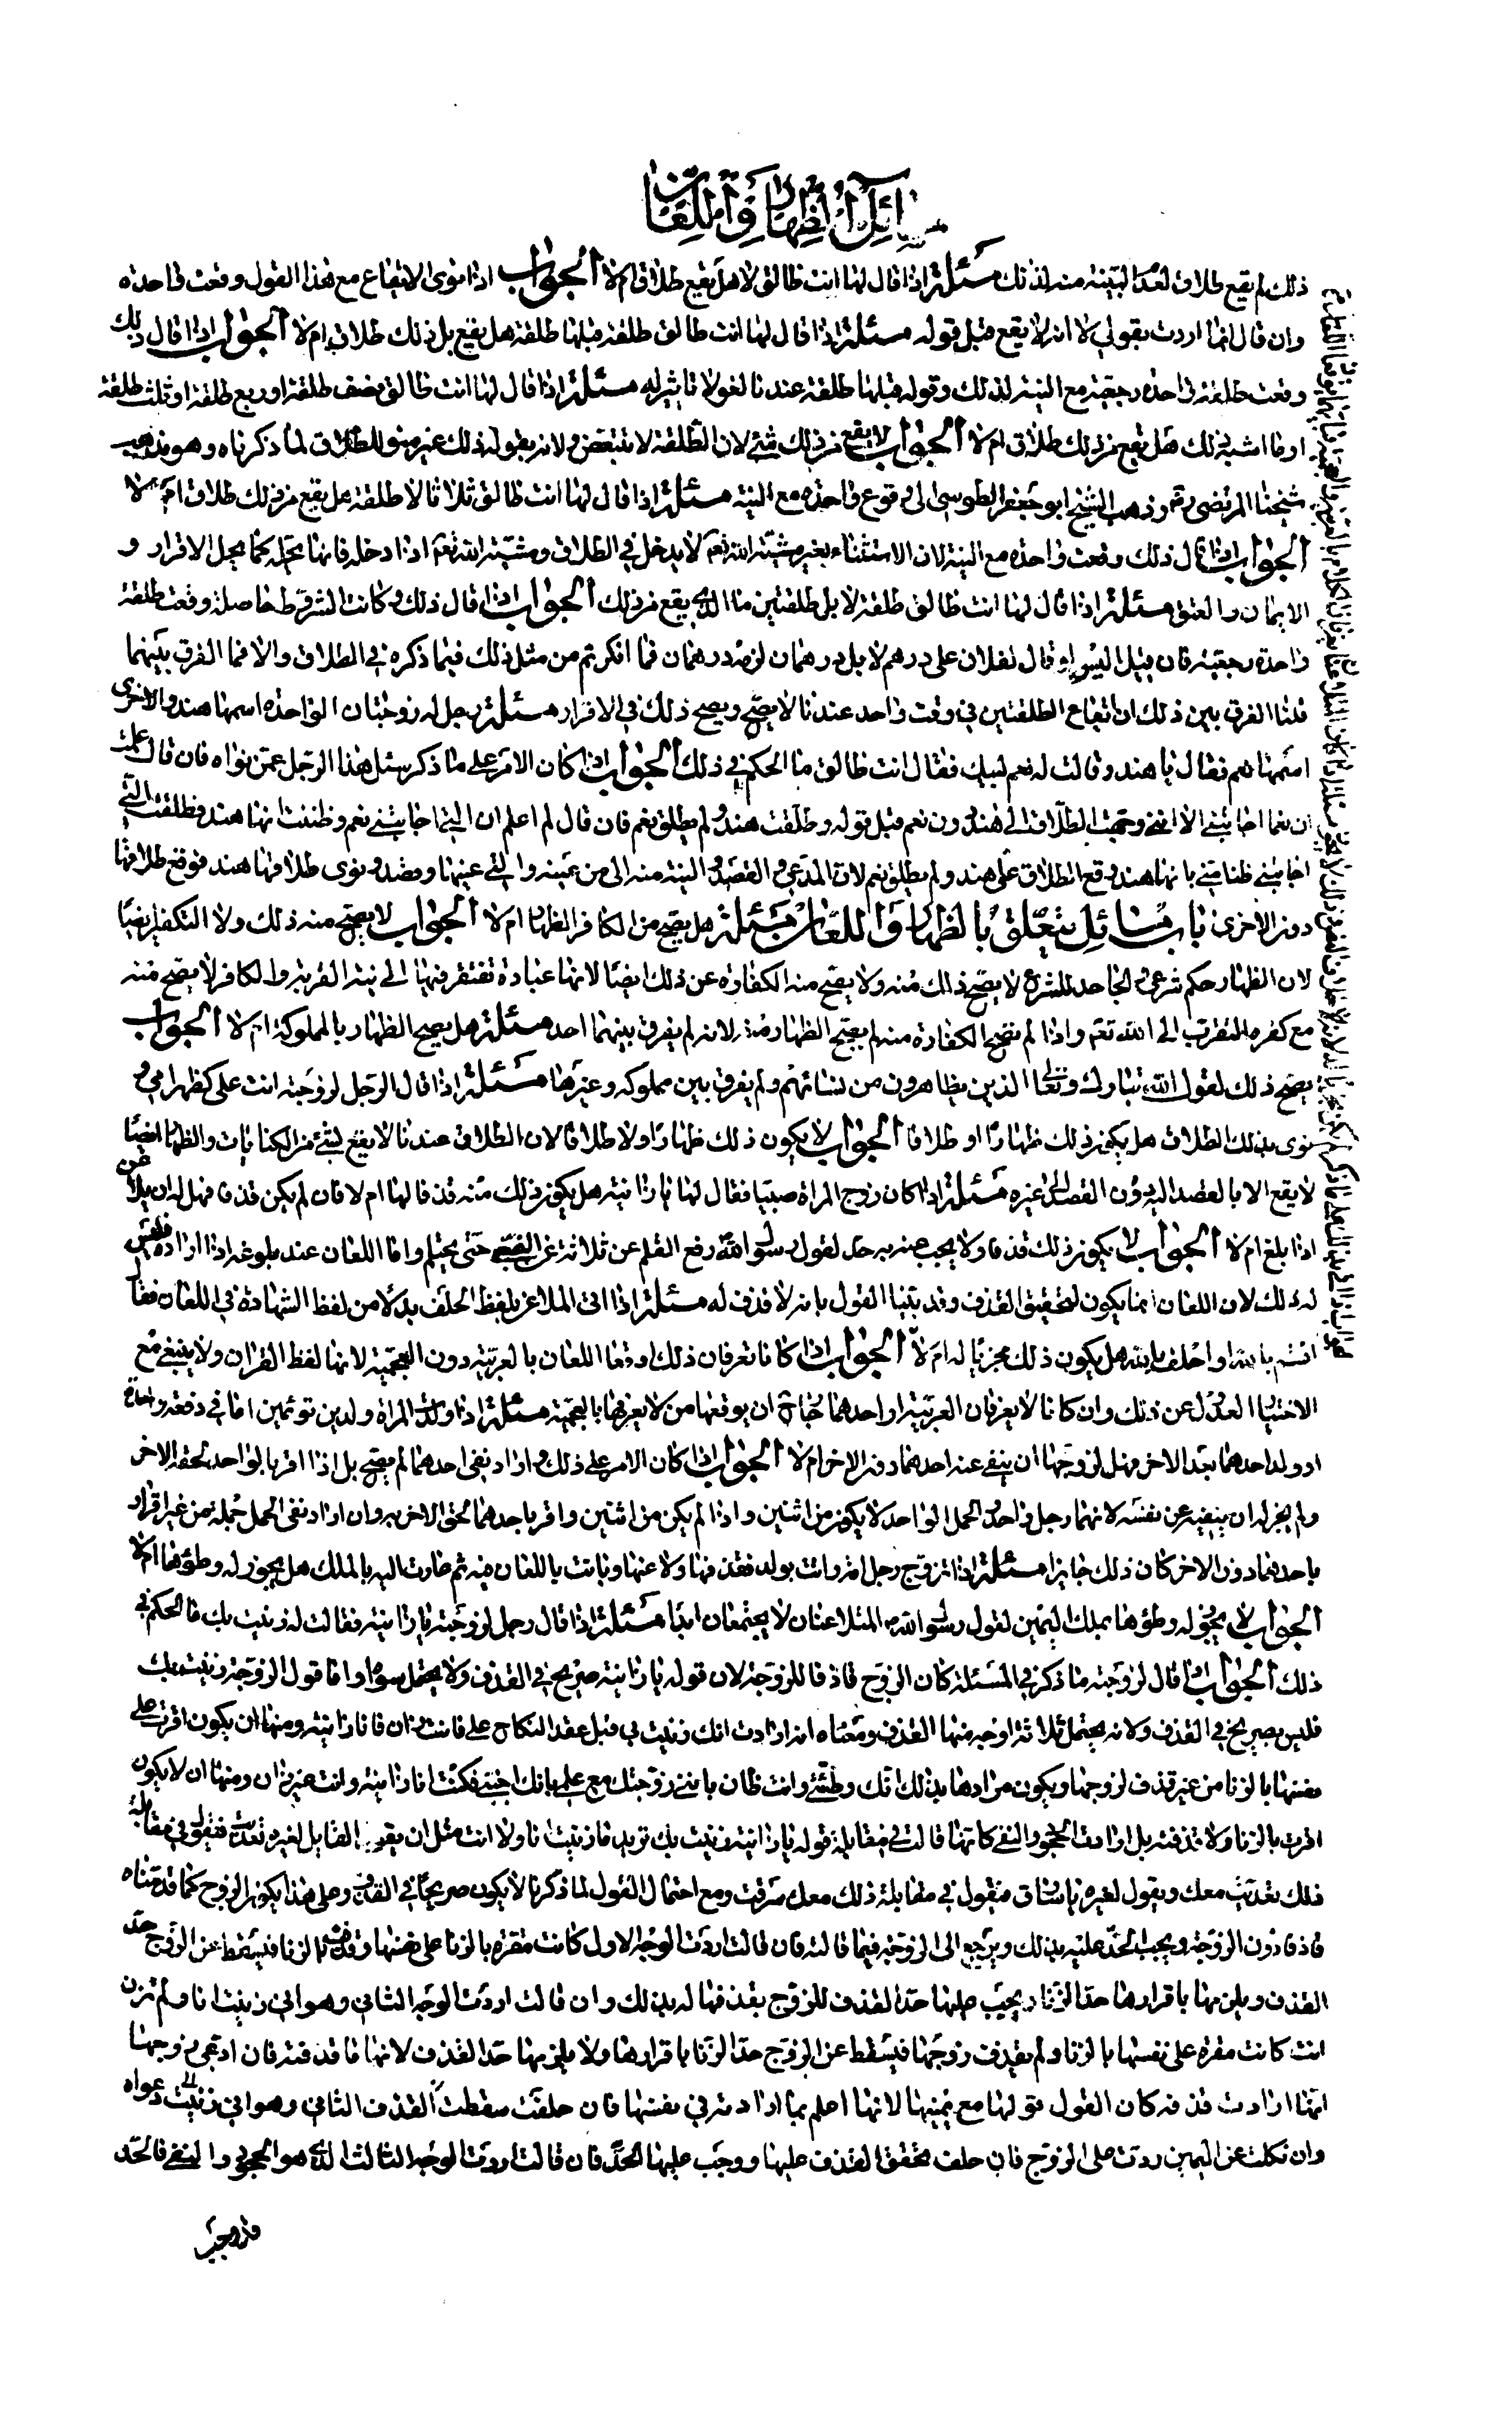 مسائل الظهار واللعان
ذلك لم يقع طلاق لعدم النية منه لذلك مسئلة اذا قال لها انت طالق لا هل يقع طلاق ام لا الجواب اذا نوى الايقاع مع هذا القول وقعت واحدة
وان قال انما اردت بقولي لا انه لا يقع قبل قوله مسئلة اذا قال لها انت طالق طلقة قبلها طلقة هل يقع بذلك طلاق ام لا الجواب اذا قال ذلك
وقعت طلقة واحدة رجعية مع النية لذلك وقوله قبلها طلقة عندنا لغو لا تاثير له مسئلة اذا قال لها انت طالق نصف طلقة او ربع طلقة او ثلث طلقة
او ما اشبه ذلك هل يقع من ذلك طلاق ام لا الجواب لا يقع من ذلك شئ لان الطلقة لا تتبعض ولانه بقوله ذلك غير منو للطلاق لما ذكرناه وهو مذهب
شيخنا المرتضى ره وذهب الشيخ ابو جعفر الطوسى الى وقوع واحدة مع النية مسئلة اذا قال لها انت طالق ثلاثا الا طلقة هل يقع من ذلك طلاق ام لا
الجواب اذا قال ذلك وقعت واحدة مع النية لان الاستثناء بغير مشيئة الله تعم لا يدخل في الطلاق ومشيئة الله تعم اذا دخله فانما يحله كما يحل الاقرار و
الايمان والعتق مسئلة اذا قال لها انت طالق طلقة لا بل طلقتين ما الذي يقع من ذلك الجواب اذا قال ذلك وكانت الشرط حاصلة وقعت طلقة
واحدة رجعية فان قيل اليس لو قال لفلان على درهم لا بل درهمان لزمه درهمان فما انكرتم من مثل ذلك فيما ذكره في الطلاق والا فما الفرق بينهما
قلنا الفرق بين ذلك ان ايقاع الطلقتين في وقت واحد عندنا لا يصح ويصح ذلك في الاقرار مسئلة رجل له زوجتان الواحدة اسمها هند والاخرى
اسمها نعم فقال يا هند وقالت له نعم لبيك فقال انت طالق ما الحكم في ذلك الجواب اذا كان الامر على ما ذكر سئل هذا الرجل عمن نواه فان قال علمت
ان نعما اجابتني الا انني وجهت الطلاق الى هند دون نعم قبل قوله وطلقت هند ولم يطلق نعم فان قال لم اعلم ان التي اجابتني نعم وظننت انها هند فطلقت التي
اجابتني ظنا مني بانها هند وقع الطلاق على هند ولم يطلق نعم لان المدعى والقصد والنية منه الى من عينه والتي عينها وقصد ونوى طلاقها هند فوقع طلاقها
دون الاخرى باب مسائل يتعلق بالظهار واللعان مسئلة هل يصح من الكافر الظهار ام لا الجواب لا يصح منه ذلك ولا التكفير ايضا
لان الظهار حكم شرعي والجاحد للشرع لا يصح ذلك منه ولا يصح منه الكفارة عن ذلك ايضا لانها عبادة تفتقر فيها الى نية القربة والكافر لا يصح منه
مع كفره التقرب الى الله تعم واذا لم يصح الكفارة منه لم يصح الظهار منه لانه لم يفرق بينهما احد مسئلة هل يصح الظهار بالمملوكة ام لا الجواب
يصح ذلك لقول الله تبارك وتعالى الذين يظاهرون من نسائهم ولم يفرق بين مملوكة وغيرها مسئلة اذا قال الرجل لزوجته انت على كظهر امي و
نوى بذلك الطلاق هل يكون ذلك ظهارا او طلاقا الجواب لا يكون ذلك ظهارا ولا طلاقا لان الطلاق عندنا لا يقع بشئ من الكنايات والظهار ايضا
لا يقع الا بالقصد اليه دون القصد الى غيره مسئلة اذا كان زوج المراة صبيا فقال لها يا زانية هل يكون ذلك منه قذفا لها ام لا فان لم يكن قذفا فهل له ان يلاعن
اذا بلغ ام لا الجواب لا يكون ذلك قذفا ولا يجب به حد لقول رسول الله رفع القلم عن ثلاثة عن الصبي حتى يحتلم واما اللعان عند بلوغه اذا اراده فليس
له ذلك لان اللعان انما يكون لتحقيق القذف وقد بينا القول بانه لا قذف له مسئلة اذا اتى الملاعن بلفظ الحلف بدلا من لفظ الشهادة في اللعان فقال
اقسم بالله او احلف بالله هل يكون ذلك مجزيا له ام لا الجواب اذا كانا يعرفان ذلك اوقعا اللعان بالعربية دون العجمية لانها لفظ القران ولا ينبغى مع
الاختيار العدول عن ذلك وان كانا لا يعرفان العربية او احدهما جاز ان يوقعها من لا يعرفها بالعجمية مسئلة اذا ولدت المراة ولدين توئمين اما في دفعة واحدة
او ولد احدهما بعد الاخر فهل لزوجها ان ينفى عنه احدهما دون الاخر ام لا الجواب اذا كان الامر على ذلك واراد نفى احدهما لم يصح بل اذا اقر بالواحد لحقه الاخر
ولم يجز له ان ينفيه عن نفسه لانهما رجل واحد والحمل الواحد لا يكون من اثنين واذا لم يكن من اثنين واقر باحدهما لحق الاخر به وان اراد نفى الحمل جملة من غير اقرار
باحدهما دون الاخر كان ذلك جايزا مسئلة اذا تزوج رجل امة واتت بولد فقذفها ولاعنها وبانت باللعان منه ثم عادت اليه بالملك هل يجوز له وطؤها ام لا
الجواب لا يجوز له وطؤها بملك اليمين لقول رسول الله ص المتلاعنان لا يجتمعان ابدا مسئلة اذا قال رجل لزوجته يا زانية فقالت له زنيت بك ما الحكم في
ذلك الجواب اذا قال لزوجته ما ذكر في المسئلة كان الزوج قاذفا للزوجة لان قوله يا زانية صريح في القذف ولا يحتمل سواه واما قول الزوجة زنيت بك
فليس بصريح في القذف ولانه يحتمل ثلاثة اوجه منها القذف ومعناه انه ارادت انك زنيت بي قبل عقد النكاح على فانت زان وانا زانية ومنها ان يكون اقرت على
نفسها بالزنا من غير قذف لزوجها ويكون مرادها بذلك انك وطئتني وانت ظان بانني زوجتك مع علمي بانك اجنبي فكنت انا زانية وانت غير زان ومنها ان لا يكون
اقرت بالزنا ولا قذفته بل ارادت الجحود والنفي كانها قالت في مقابلة قوله يا زانية زنيت بك تريد ما زنيت انا ولا انت مثل ان يقول القايل لغيره تعديت فيقول في مقابلة
ذلك تعديت معك ويقول لغيره يا سارق فيقول في مقابلة ذلك معك سرقت ومع احتمال القول لما ذكرنا لا يكون صريحا في القذف وعلى هذا يكون الزوج كما قدمناه
قاذفا دون الزوجة ويجب الحد عليه بذلك ويرجع الى الزوجة فيما قالته فان قالت اردت الوجه الاول كانت مقرة بالزنا على نفسها وقذف بالزنا فيسقط عن الزوج حد
القذف ويلزمها باقرارها حد الزنا ويجب عليها حد القذف للزوج بقذفها له بذلك وان قالت اردت الوجه الثاني وهو اني زنيت انا ولم تزن
انت كانت مقرة على نفسها بالزنا ولم يقذف زوجها فيسقط عن الزوج حد الزنا باقرارها ولا يلزمها حد القذف لانها ما قذفته فان ادعى زوجها
انها ارادت قذفه كان القول قولها مع يمينها لانها اعلم بما ارادته في نفسها فان حلفت سقطت القذف الثاني وهو اني زنيت دعواه
وان نكلت عن اليمين ردت على الزوج فان حلف تحقق القذف عليها ووجب عليها الحد فان قالت اردت الوجه الثالث الذي هو الجحود والنفى فالحد
قد وجب